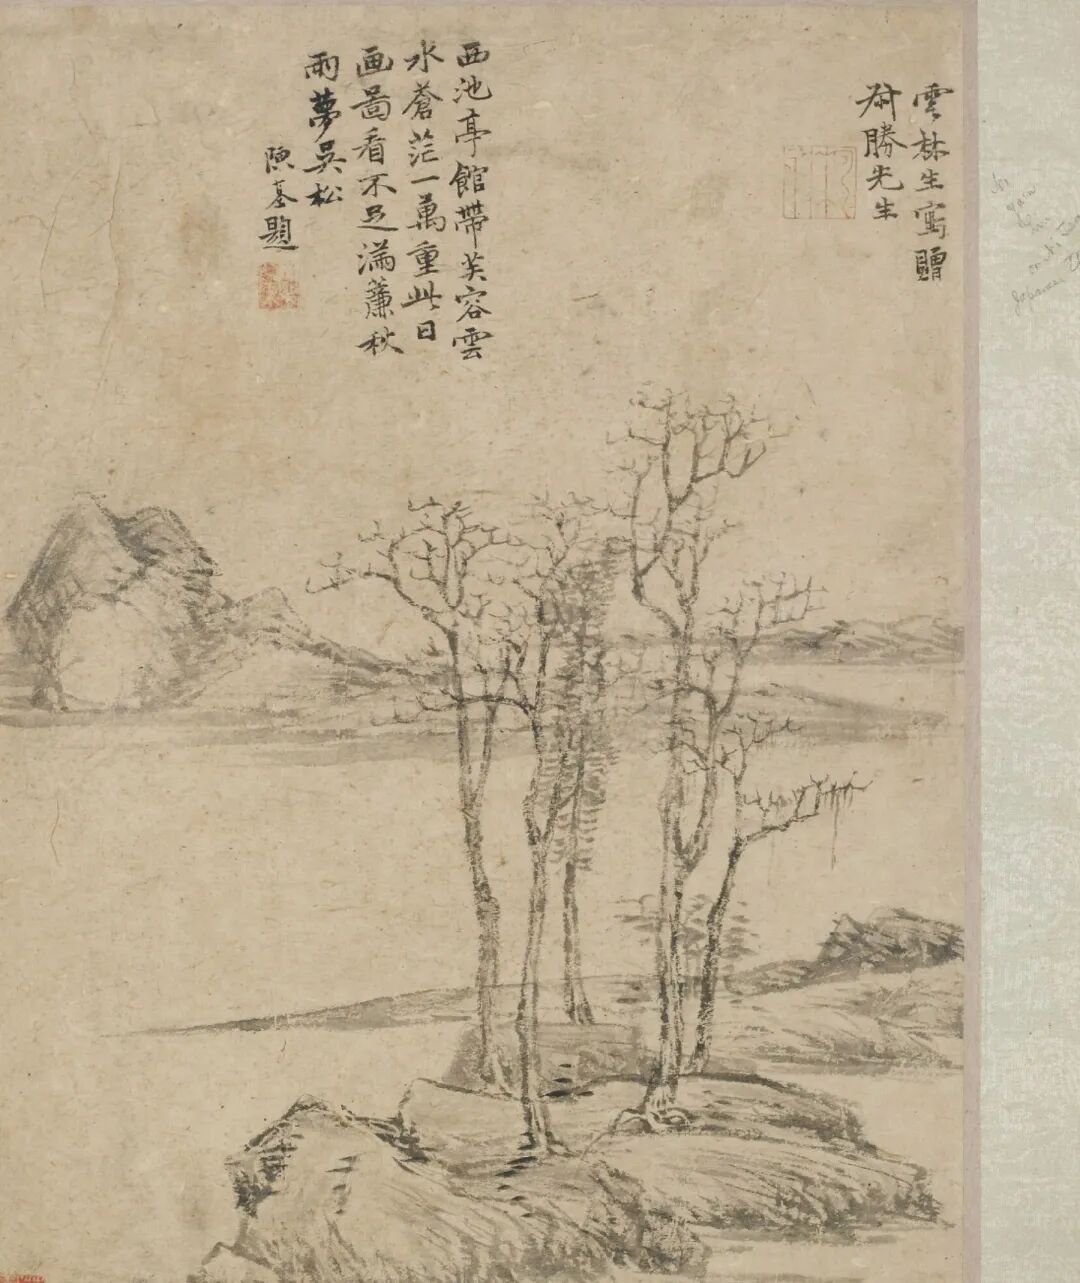 雲林生寫贈
勝先生
西池亭館帶芙容雲
水蒼茫一萬重此日
画啚看不足满蔗秋
雨夢吳松
陳基題